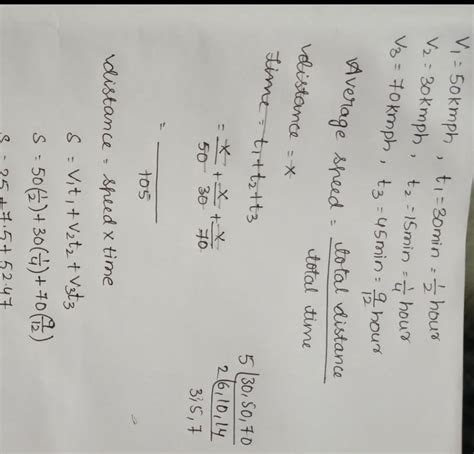 V1 = 50kmph , t1 = 30min = 1/2 hour
V2 = 30kmph , t2 = 15min = 1/4 hour
V3 = 70kmph , t3 = 45min = 9/12 hour
Average speed = total distance / total time
distance = x
time = t1 + t2 + t3
= x/50 + x/30 + x/70
5 | 30, 50, 70
2 | 6, 10, 14
3, 5, 7
= ___ / 105
distance = speed x time
S = V1t1 + V2t2 + V3t3
S = 50(1/2) + 30(1/4) + 70(9/12)
S = 25 + 7.5 + 52.47